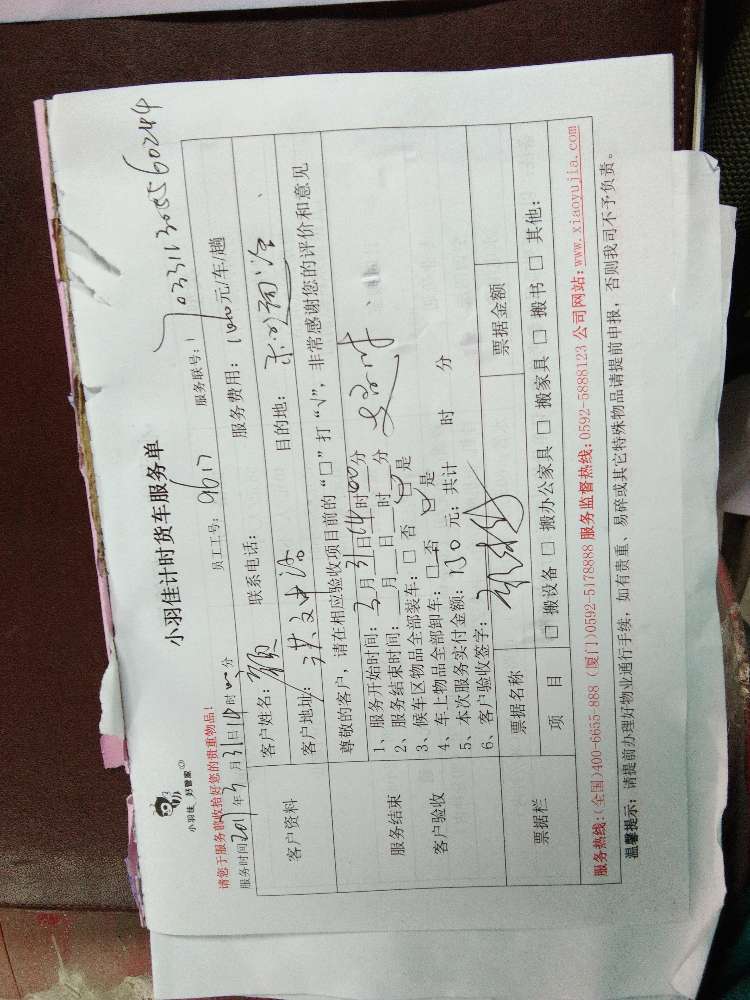 小羽佳 好管家
小羽佳计时货车服务单
请您于服务前收拾好您的贵重物品！
服务时间 年3月31日14时 分 员工工号：9617 服务联号：
客户资料 客户姓名： 联系电话： 服务费用： 元/车/趟
客户地址： 目的地：
尊敬的客户，请在相应验收项目前的“□”打“√”，非常感谢您的评价和意见
服务结束
客户验收
1、服务开始时间：3月31日14时00分
2、服务结束时间： 月 日 时 分
3、候车区物品全部装车：□否 □是
4、车上物品全部卸车：□否 □是
5、本次服务实付金额：130元；共计 时 分
6、客户验收签字：
票据栏 票据名称 票据金额
项 目 □搬设备 □搬办公家具 □搬家具 □搬书 □其他：
服务热线：(全国)400-6655-888 (厦门)0592-5178888 服务监督热线：0592-5888123 公司网站：www.xiaoyujia.com
温馨提示：请提前办理好物业通行手续，如有贵重、易碎或其它特殊物品请提前申报，否则我司不予负责。